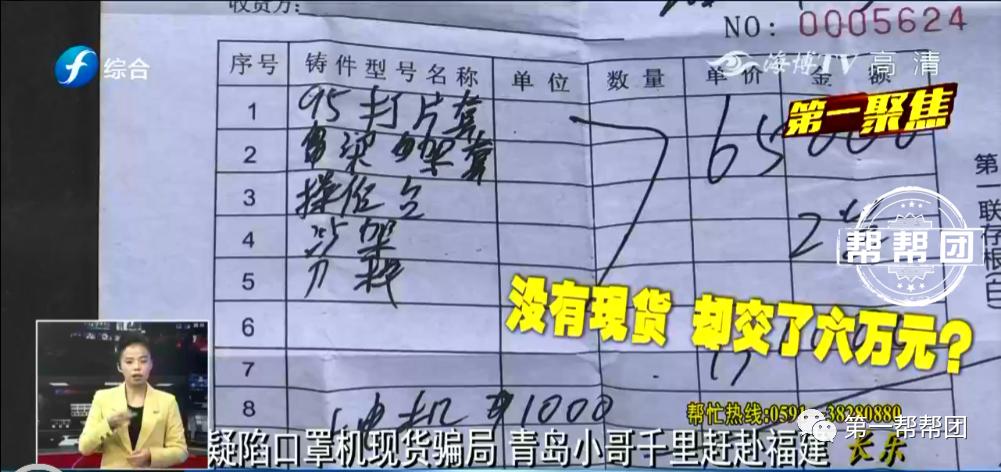 收货方:
NO: 0005624
综合
海博TV 高清
序号 铸件型号名称 单位 数量 单价 金额
第一聚焦
1 95打片套 65000
2
3 操作台
4
5
6
7
8 1000
第一联存根(白)
帮帮团
没有现货 却交了六万元?
帮忙热线:0591-38280880
疑陷口罩机现货骗局 青岛小哥千里赶赴福建长乐
第一帮帮团